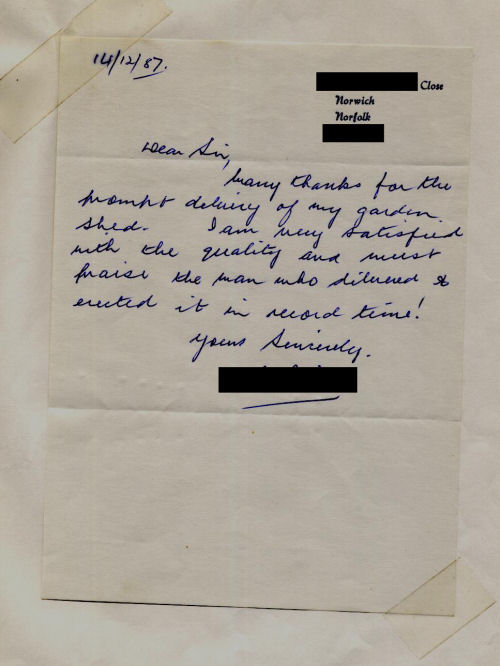 14/12/87.
Close
Norwich
Norfolk
Dear Sir,
Many thanks for the
prompt delivery of my garden
shed. I am very satisfied
with the quality and must
praise the man who delivered &
erected it in record time!
Yours Sincerely.